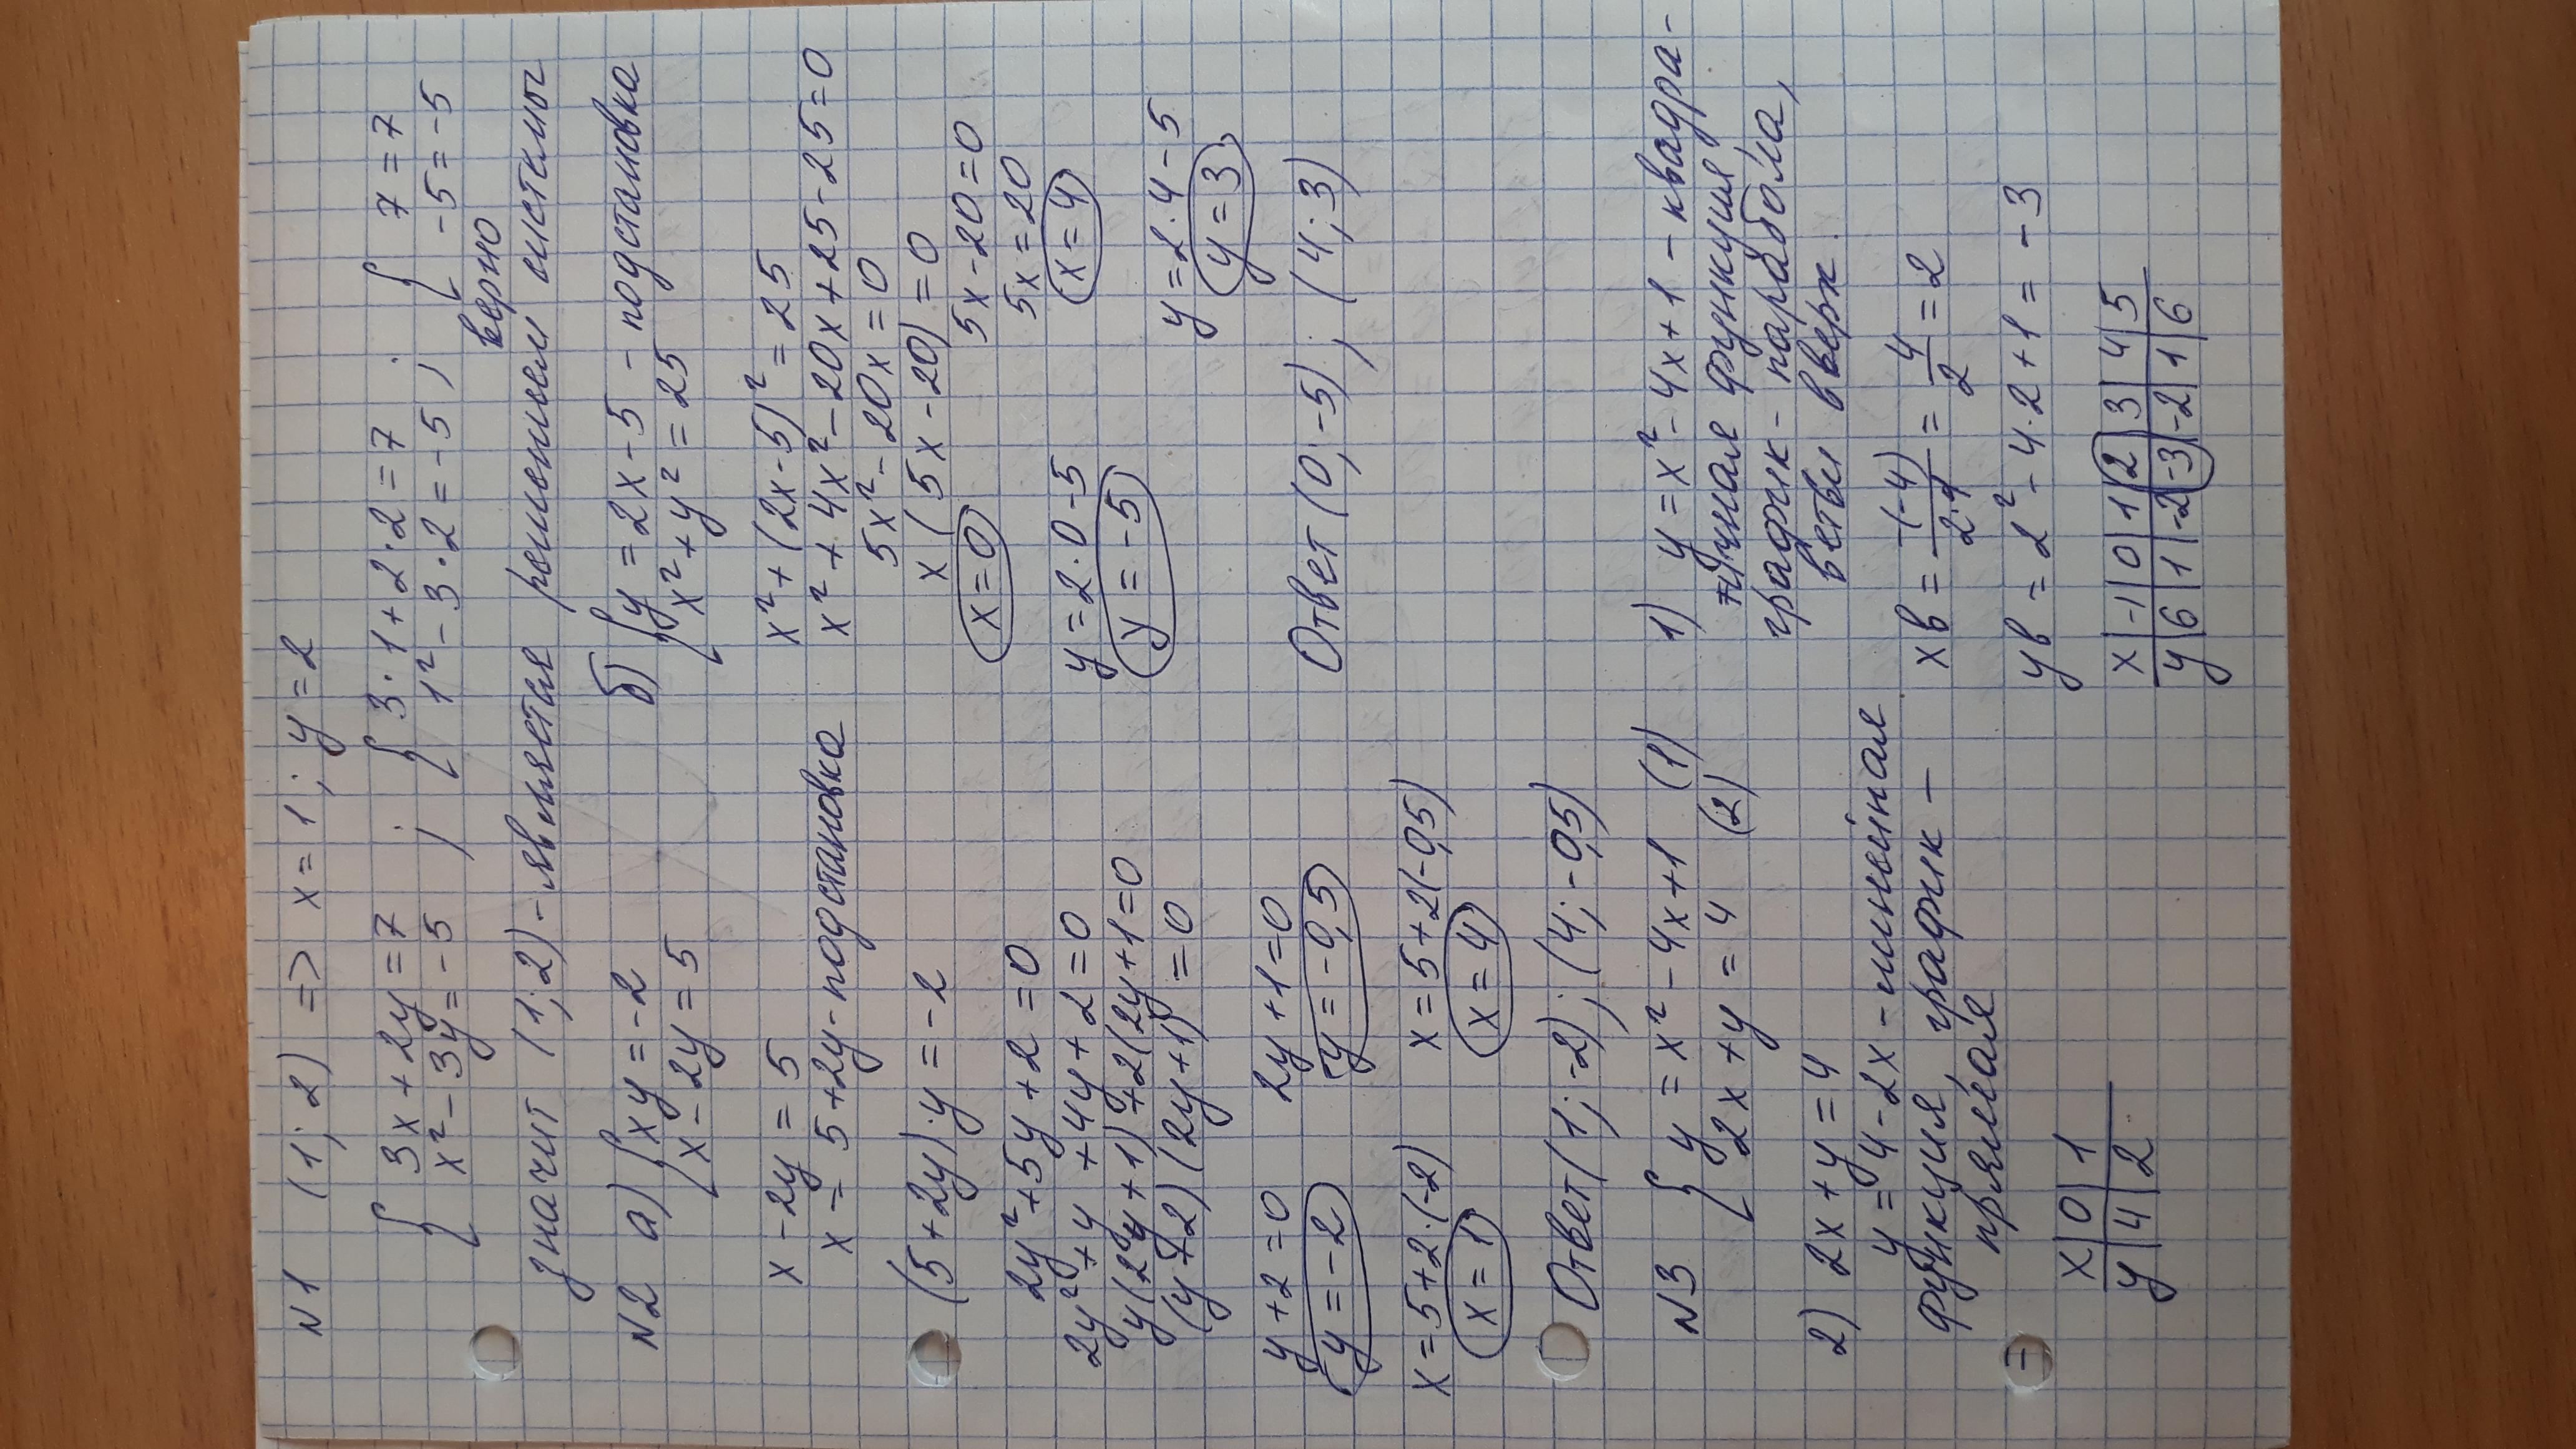 N1 (1; 2) => x = 1; y = 2
{ 3x + 2y = 7 ; { 3·1 + 2·2 = 7 ; { 7 = 7
x² - 3y = -5 1² - 3·2 = -5 -5 = -5
верно
значит (1; 2) - является решением системы
N2 а) { xy = -2
x - 2y = 5
x - 2y = 5
x = 5 + 2y - подстановка
(5 + 2y)·y = -2
2y² + 5y + 2 = 0
2y² + y + 4y + 2 = 0
y(2y + 1) + 2(2y + 1) = 0
(y + 2)(2y + 1) = 0
y + 2 = 0 2y + 1 = 0
y = -2 y = -0,5
x = 5 + 2·(-2) x = 5 + 2(-0,5)
x = 1 x = 4
Ответ (1; -2); (4; -0,5)
б) { y = 2x - 5 - подстановка
x² + y² = 25
x² + (2x - 5)² = 25
x² + 4x² - 20x + 25 - 25 = 0
5x² - 20x = 0
x(5x - 20) = 0
x = 0 5x - 20 = 0
5x = 20
x = 4
y = 2·0 - 5 y = 2·4 - 5
y = -5 y = 3
Ответ (0; -5); (4; 3)
N3 { y = x² - 4x + 1 (1)
2x + y = 4 (2)
1) y = x² - 4x + 1 - квадра-
тичная функция
график - парабола,
ветви вверх.
xв = -(-4)/2·1 = 4/2 = 2
yв = 2² - 4·2 + 1 = -3
x | -1 | 0 | 1 | 2 | 3 | 4 | 5
y | 6 | 1 | -2 | -3 | -2 | 1 | 6
2) 2x + y = 4
y = 4 - 2x - линейная
функция, график -
прямая
=
x | 0 | 1
y | 4 | 2